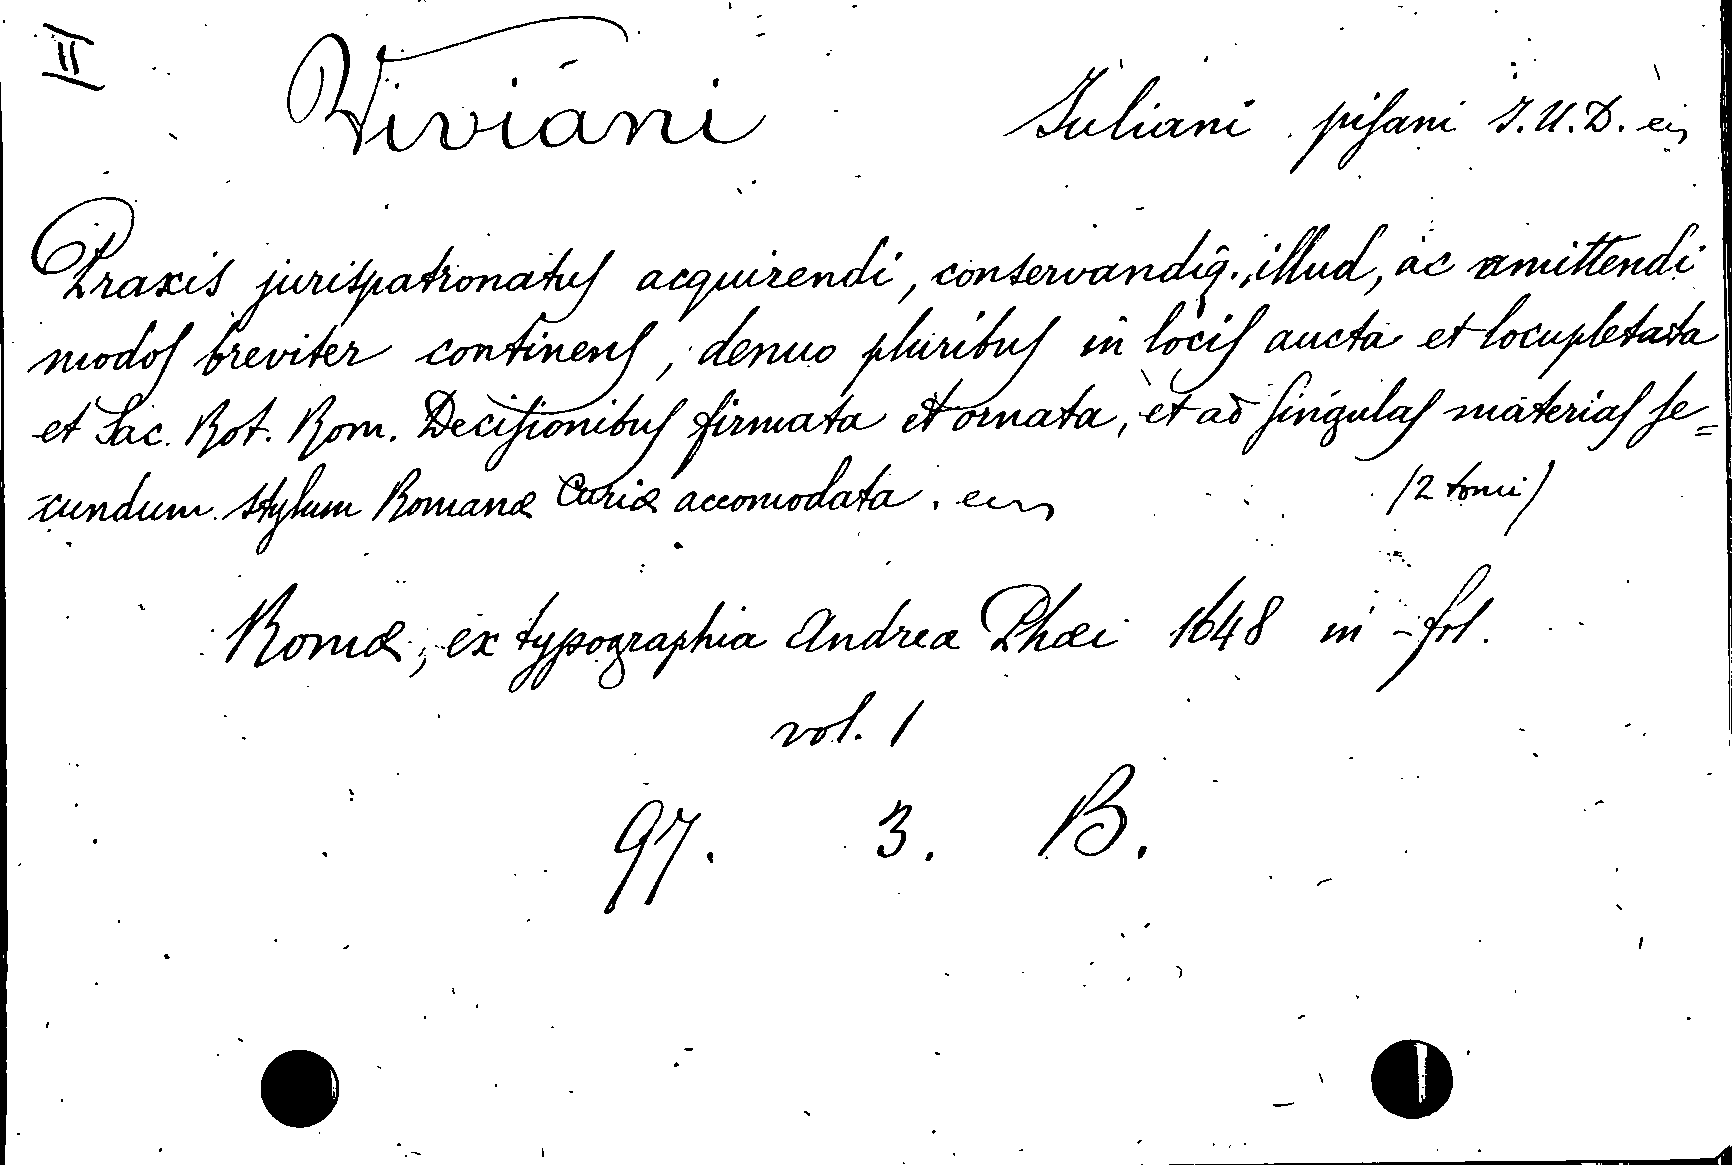 II
Viviani Juliani pisani J.U.D.
Praxis jurispatronatus acquirendi, conservandiq̃., illud, ac amittendi
modos breviter continens, denuo pluribus in locis aucta et locupletata
et Sac. Rot. Rom. Decisionibus firmata et ornata, et ad singulas materias se=
cundum stylum Romanæ Curiæ accomodata.
/2 tomi/
Romæ, ex typographia Andrea Phæi 1648 in-fol.
vol. 1
97. 3. B.